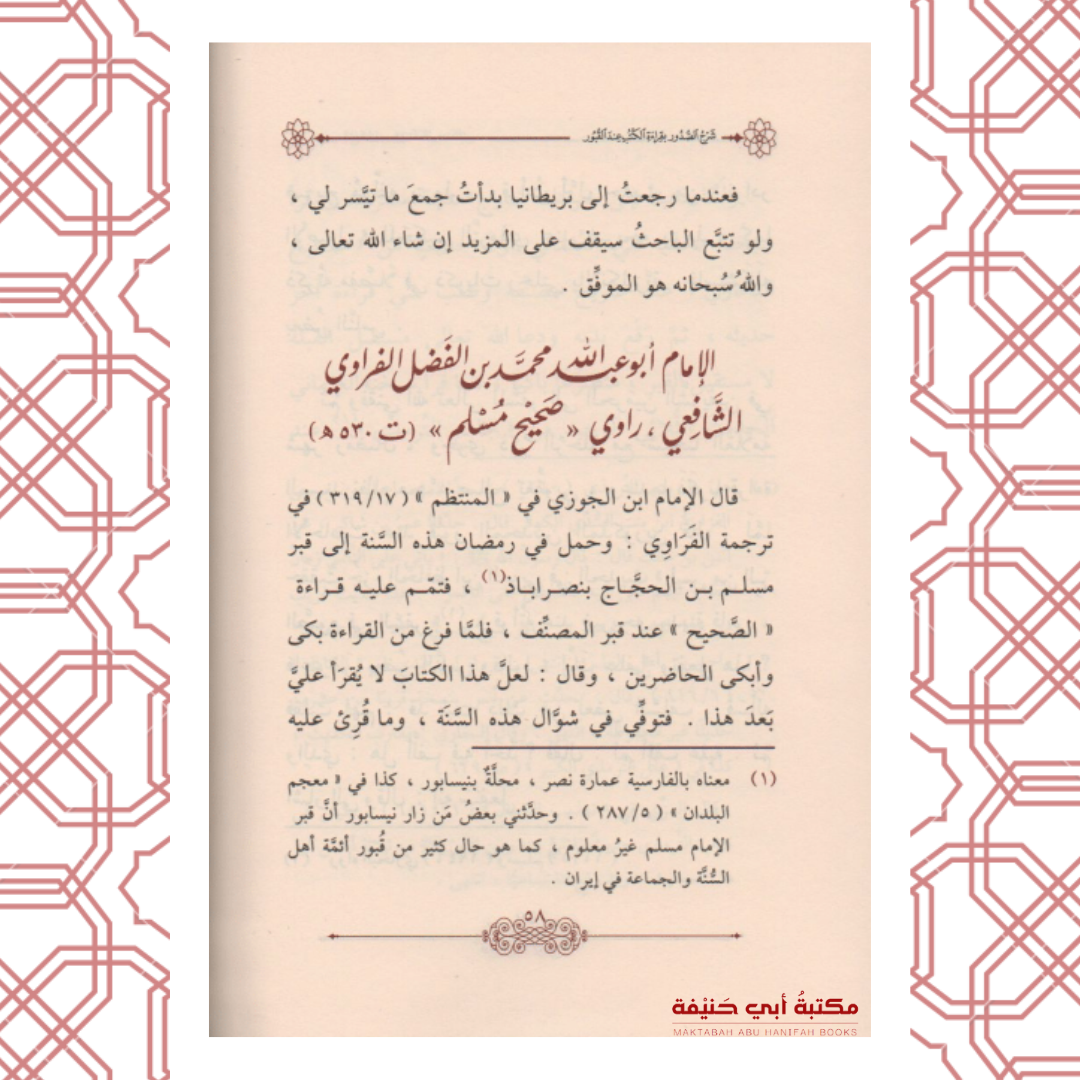 شَرْحُ الصُّدُور بِقِرَاءَةِ الكُتُبِ عِنْدَ القُبُورِ
فعندما رجعتُ إلى بريطانيا بدأتُ جمعَ ما تيَّسر لي ،
ولو تتبَّع الباحثُ سيقف على المزيد إن شاء الله تعالى ،
واللهُ سُبحانه هو الموفِّق .
الإمام أبو عبد الله محمَّد بن الفَضل الفراوي
الشَّافِعي ، راوي « صَحِيْح مُسْلم » (ت ٥٣٠ هـ)
قال الإمام ابن الجوزي في « المنتظم » ( ٣١٩/١٧ ) في
ترجمة الفَرَاوِي : وحمل في رمضان هذه السَّنة إلى قبر
مسلـم بـن الحجَّـاج بنصـرابـاذ(١) ، فتمّـم عليـه قـراءة
« الصَّحيح » عند قبر المصنِّف ، فلمَّا فرغ من القراءة بكى
وأبكى الحاضرين ، وقال : لعلَّ هذا الكتابَ لا يُقرَأ عليَّ
بَعدَ هذا . فتوفِّي في شوَّال هذه السَّنَة ، وما قُرِئ عليه
(١) معناه بالفارسية عمارة نصر ، محلَّةٌ بنيسابور ، كذا في « معجم
البلدان » ( ٢٨٧/٥ ) . وحدَّثني بعضُ مَن زار نيسابور أنَّ قبر
الإمام مسلم غيرُ معلوم ، كما هو حال كثير من قُبور أئمَّة أهل
السُّنَّة والجماعة في إيران .
٥٨
مكتبةُ أبي حَنيْفة
MAKTABAH ABU HANIFAH BOOKS